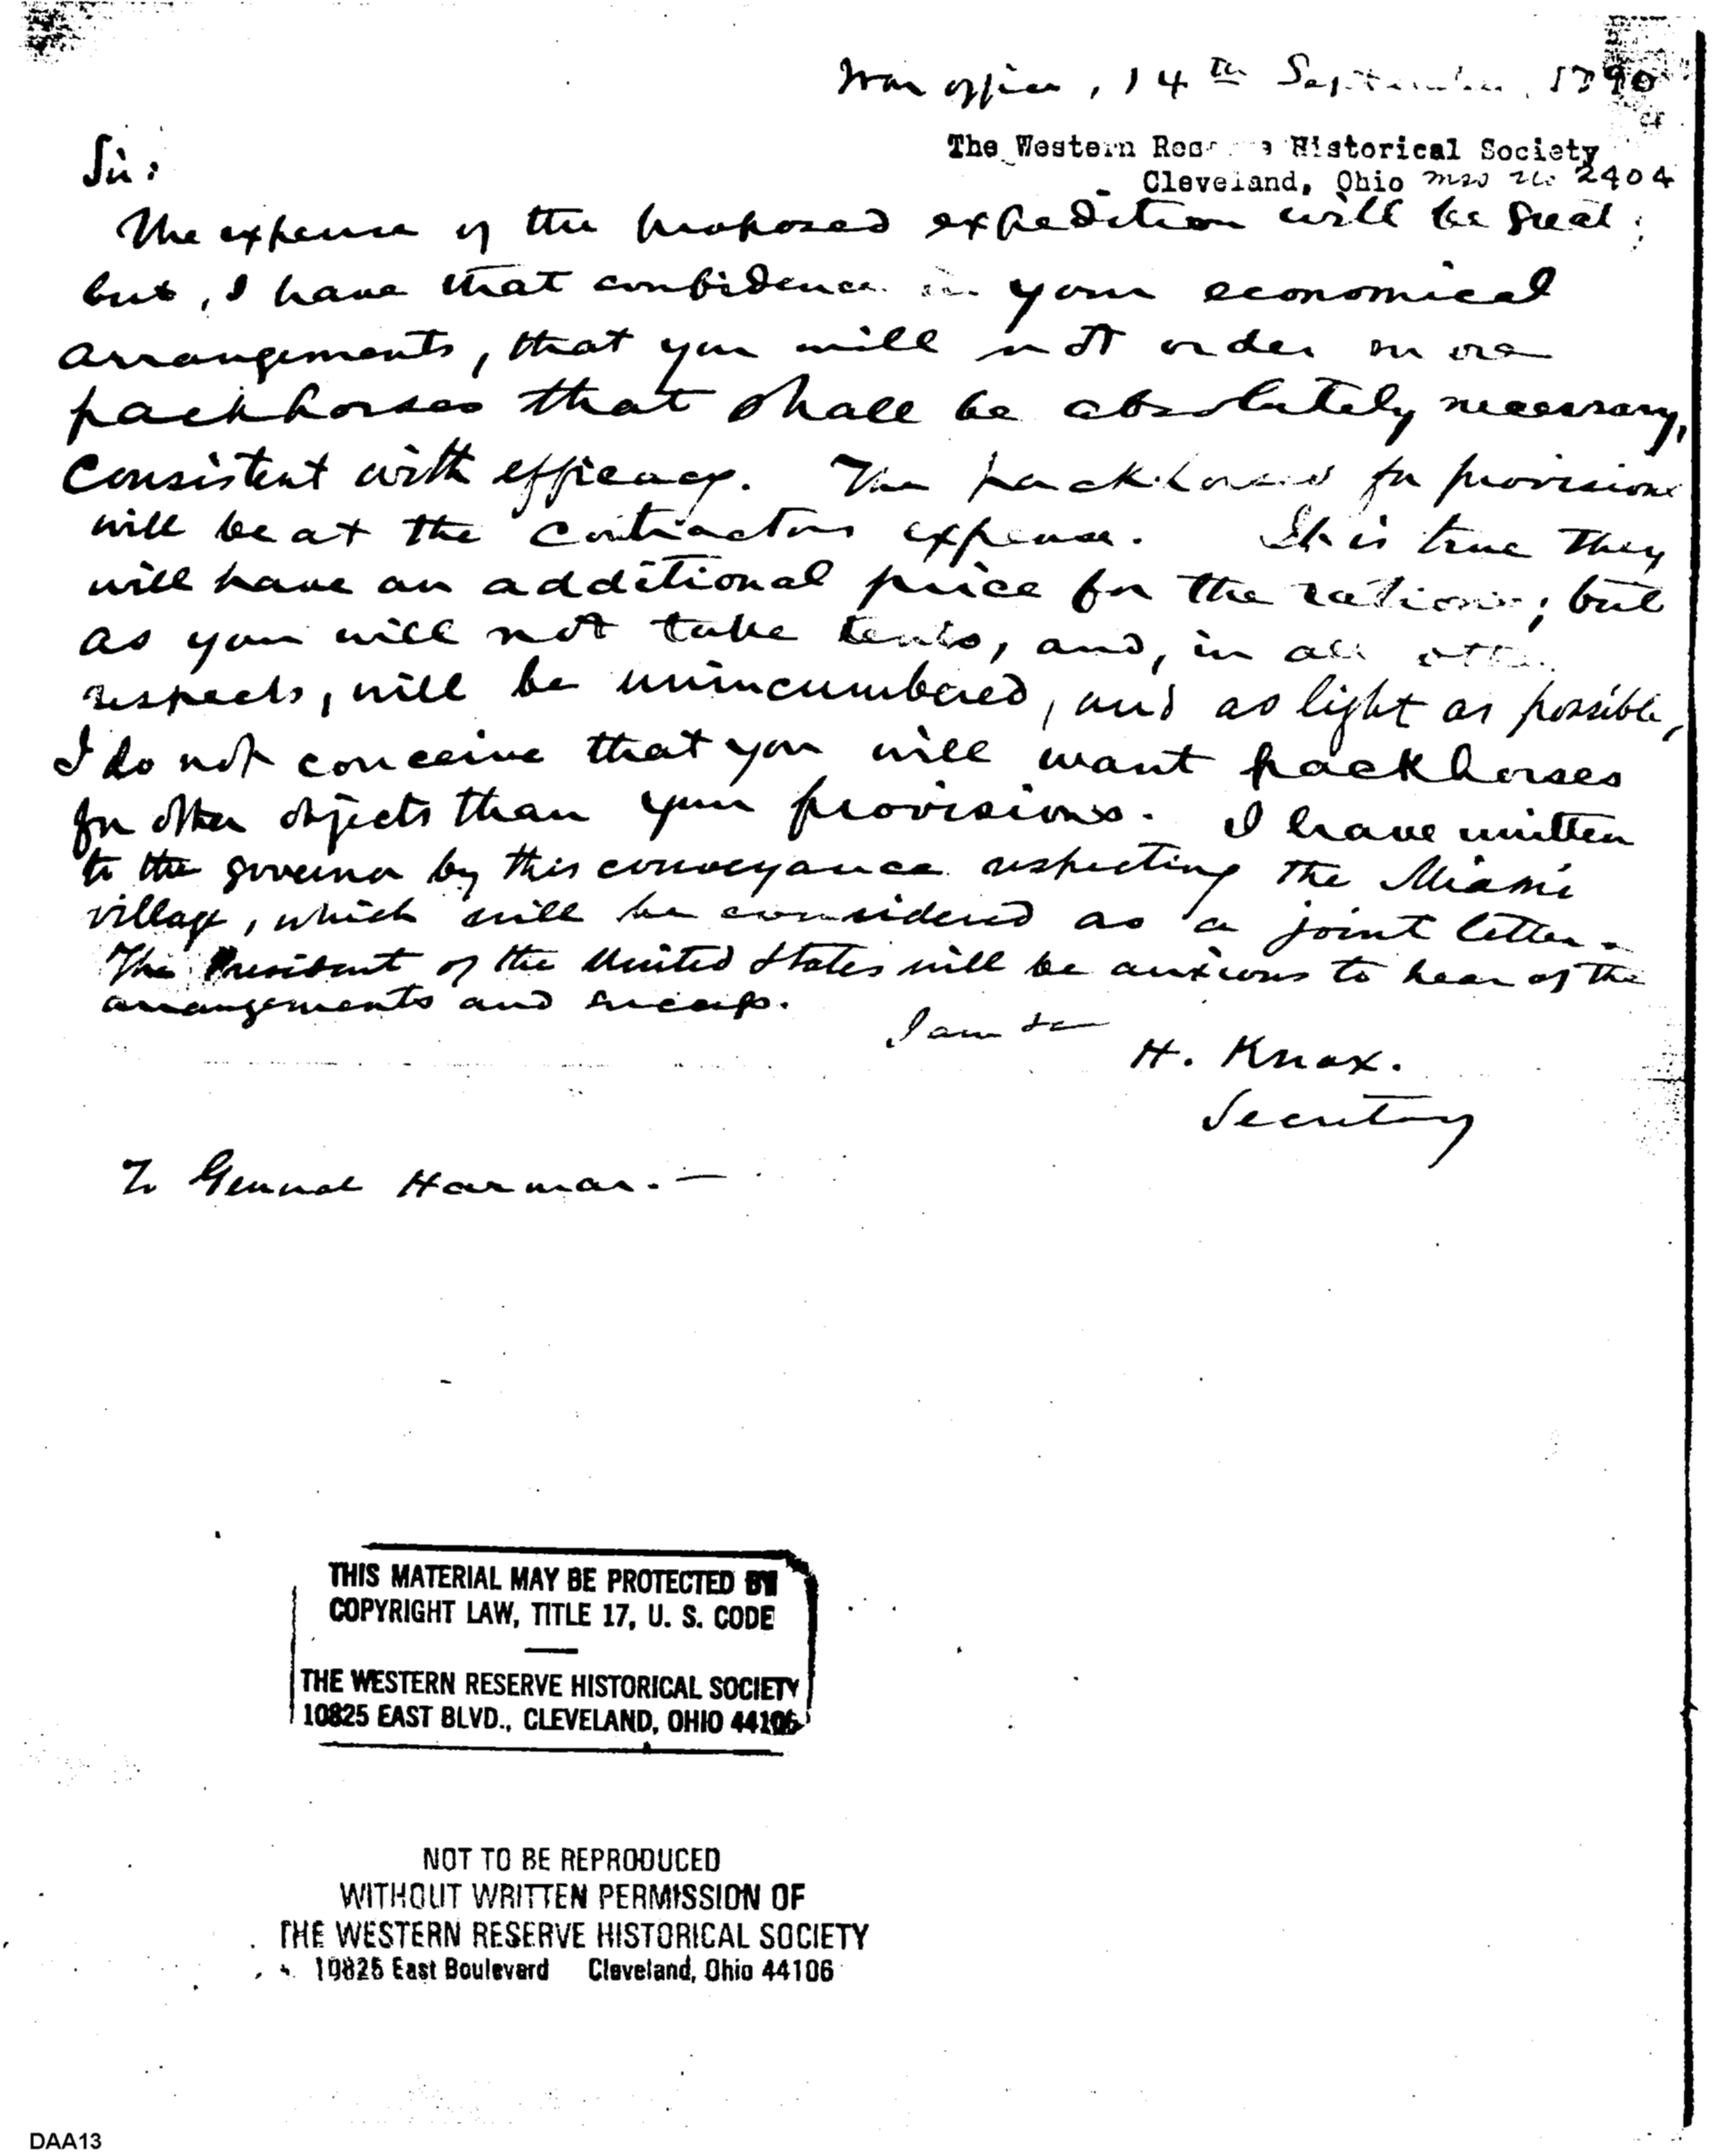 War office, 14th September, 1790
The Western Reserve Historical Society
Cleveland, Ohio mss no 2404
Sir:
The expense of the proposed expedition will be great;
but, I have that confidence in your economical
arrangements, that you will not order more
packhorses that shall be absolutely necessary,
consistent with efficacy. The packhorses for provisions
will be at the contractors expense. It is true they
will have an additional price for the rations; but
as you will not take tents, and, in all other
respects, will be unincumbered, and as light as possible,
I do not conceive that you will want packhorses
for other objects than your provisions. I have written
to the governor by this conveyance respecting the Miami
village, which will be considered as a joint letter.
The President of the United States will be anxious to hear of the
arrangements and success.
I am &c
H. Knox.
Secretary
To General Harmar. —
THIS MATERIAL MAY BE PROTECTED BY
COPYRIGHT LAW, TITLE 17, U. S. CODE
THE WESTERN RESERVE HISTORICAL SOCIETY
10825 EAST BLVD., CLEVELAND, OHIO 44106
NOT TO BE REPRODUCED
WITHOUT WRITTEN PERMISSION OF
THE WESTERN RESERVE HISTORICAL SOCIETY
10825 East Boulevard Cleveland, Ohio 44106
DAA13